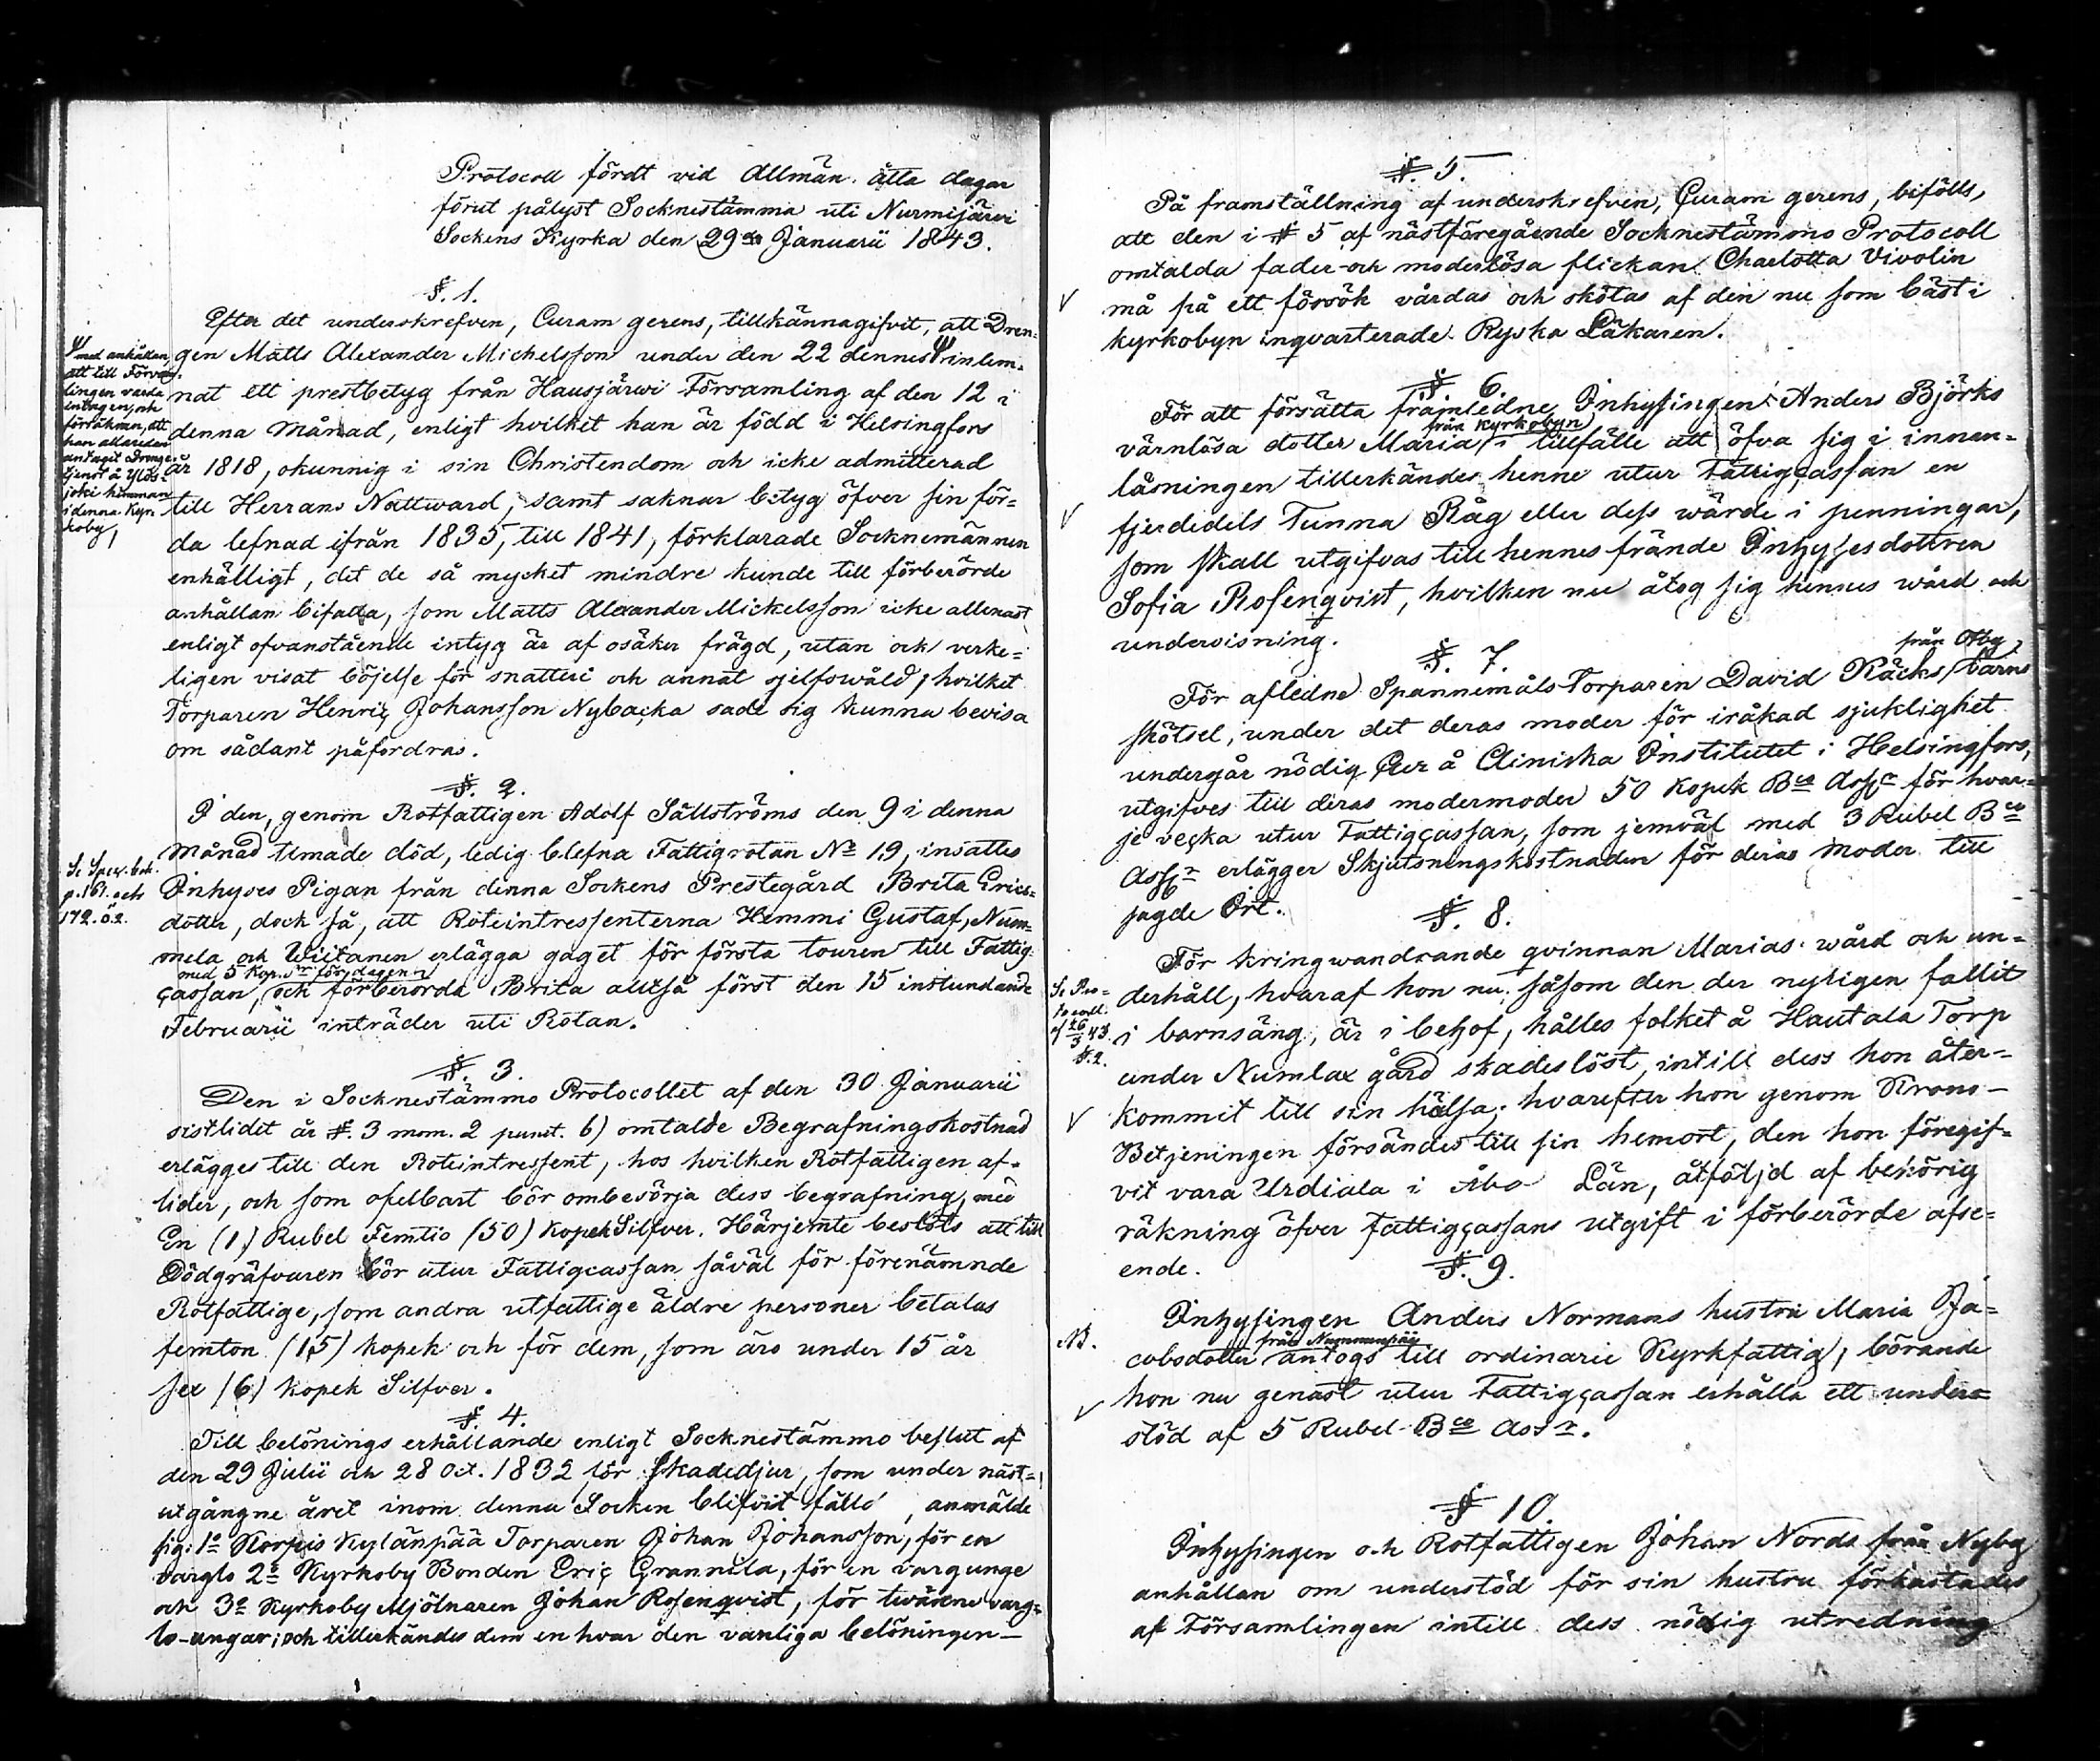 Protocoll fördt vid Allmän åtta dagar
förut pålyst Socknestämma uti Nurmijärvi
Sockens Kyrka den 29de Januarii 1843.
§. 1.
Efter det underskrefven, Curam gerens, tillkännagifvit, att Dren-
gen Matts Alexander Michelsson under den 22 dennes Ψ inlem-
nat ett prestbetyg från Hausjärwi Församling af den 12 i
denna Månad, enligt hvilket han är född i Helsingfors
år 1818, okunnig i sin Christendom och icke admitterad
till Herrans Nattward, samt saknar betyg öfver sin för-
da lefnad ifrån 1835, till 1841, förklarade Socknemännen
enhälligt, det de så mycket mindre kunde till förberörde
anhållan bifalla, som Matts Alexander Mickelsson icke allenast
enligt ofvanstående intyg är af osäker frägd, utan och verke-
ligen visat böjelse för snatteri och annat sjelfswåld, hvilket
Torparen Henric Johansson Nybacka sade sig kunna bevisa
om sådant påfordras.
Ψ med anhållan
att till Försam-
lingen varda
intagen, och
försäkran, att
han allaredan
antagit Drenge-
tjenst å Ylös-
joki hemman
i denna Kyr-
koby,
§. 2.
I den, genom Rotfattigen Adolf Sällströms den 9 i denna
Månad timade död, ledig blefna Fattigrotan No 19, insattes
Inhyses Pigan från denna Sockens Prestegård Brita Erics-
dotter, dock så, att Roteintressenterna Hemmi Gustaf, Num-
mela och Wiitanen erlägga gaget för första touren till Fattig-
med 5 Kop. Sr för dagen
cassan, och förberörda Brita altså först den 15 instundande
Februarii inträder uti Rotan.
Se Spec. bok.
p. 161. och
172. ö2.
§. 3.
Den i Socknestämmo Protocollet af den 30 Januarii
sistlidet år §. 3 mom. 2 punct. 6) omtalde Begrafningskostnad
erlägges till den Roteintressent, hos hvilken Rotfattigen af-
lider, och som ofelbart bör ombesörja dess begrafning, med
En (1) Rubel Femtio (50) Kopek Silfver. Härjemte beslöts att till
Dödgräfvaren bör utur Fattigcassan såväl för förenämnde
Rotfattige, som andra utfattige äldre personer betalas
femton (15) kopek och för dem, som äro under 15 år
sex (6) kopek Silfver.
§. 4.
Till belönings erhållande enligt Socknestämmo beslut af
den 29 Julii och 28 Oct. 1832 för Skadedjur, som under näst-
utgångne året inom denna Socken blifvit fälld, anmälde
sig: 1o Korpis Kylänpää Torparen Johan Johansson, för en
varglo 2o Kyrkoby Bonden Eric Grannila, för en vargunge
och 3o Kyrkoby Mjölnaren Johan Rosenqvist, för twänne varg-
lo-ungar; och tillerkändes dem en hvar den vanliga belöningen—
§. 5.
På framställning af underskrefven, Curam gerens, bifölls,
att den i § 5 af nästföregående Socknestämmo Protocoll
omtalda fader- och moderlösa flickan Charlotta Vivolin
må på ett försök vårdas och skötas af den nu som bäst i
kyrkobyn inqvarterade Ryska Läkaren.
§ 6.
För att försätta framledne Inhysingen Anders Björks
från Kyrkobyn
värnlösa dotter Maria, i tillfälle att öfva sig i innan-
läsningen tillerkändes henne utur Fattigcassan en
fjerdedels Tunna Råg eller dess wärde i penningar,
som skall utgifvas till hennes frände Inhysesdottren
Sofia Rosenqvist, hvilken nu åtog sig hennes wård och
undervisning.
§. 7.
från Otby
För afledne Spannemåls-Torparen David Räcks barns
skötsel, under det deras moder för iråkad sjuklighet
undergår nödig Cur å Cliniska Institutet i Helsingfors,
utgifves till deras modermoder 50 Kopek Bco Assr för hvar-
je vecka utur Fattigcassan, som jemväl med 3 Rubel Bco
Assr erlägger Skjutsningskostnaden för deras Moder till
sagde Ort.
§. 8.
För kringwandrande qvinnan Marias wård och un-
derhåll, hvaraf hon nu, såsom den der nyligen fallit
i barnsäng, är i behof, hålles folket å Hautala Torp
under Numlax gård skadeslöst, intill dess hon åter-
kommit till sin hälsa; hvarefter hon genom Krono-
Betjeningen försändes till sin hemort, den hon föregif-
vit vara Urdiala i Åbo Län, åtföljd af behörig
räkning öfver Fattigcassans utgift i förberörde afse-
ende.
Se Pro-
tocoll.
af 26/3 43.
§. 2.
§. 9.
Inhysingen Anders Normans hustru Maria Ja-
från Nummenpää
cobsdotter antogs till ordinarie Kyrkfattig, börande
hon nu genast utur Fattigcassan erhålla ett under-
stöd af 5 Rubel Bco Assr.
NB.
§ 10.
Inhysingen och Rotfattigen Johan Nords från Nyby
anhållan om understöd för sin hustru förkastades
af Församlingen intill dess nödig utredning